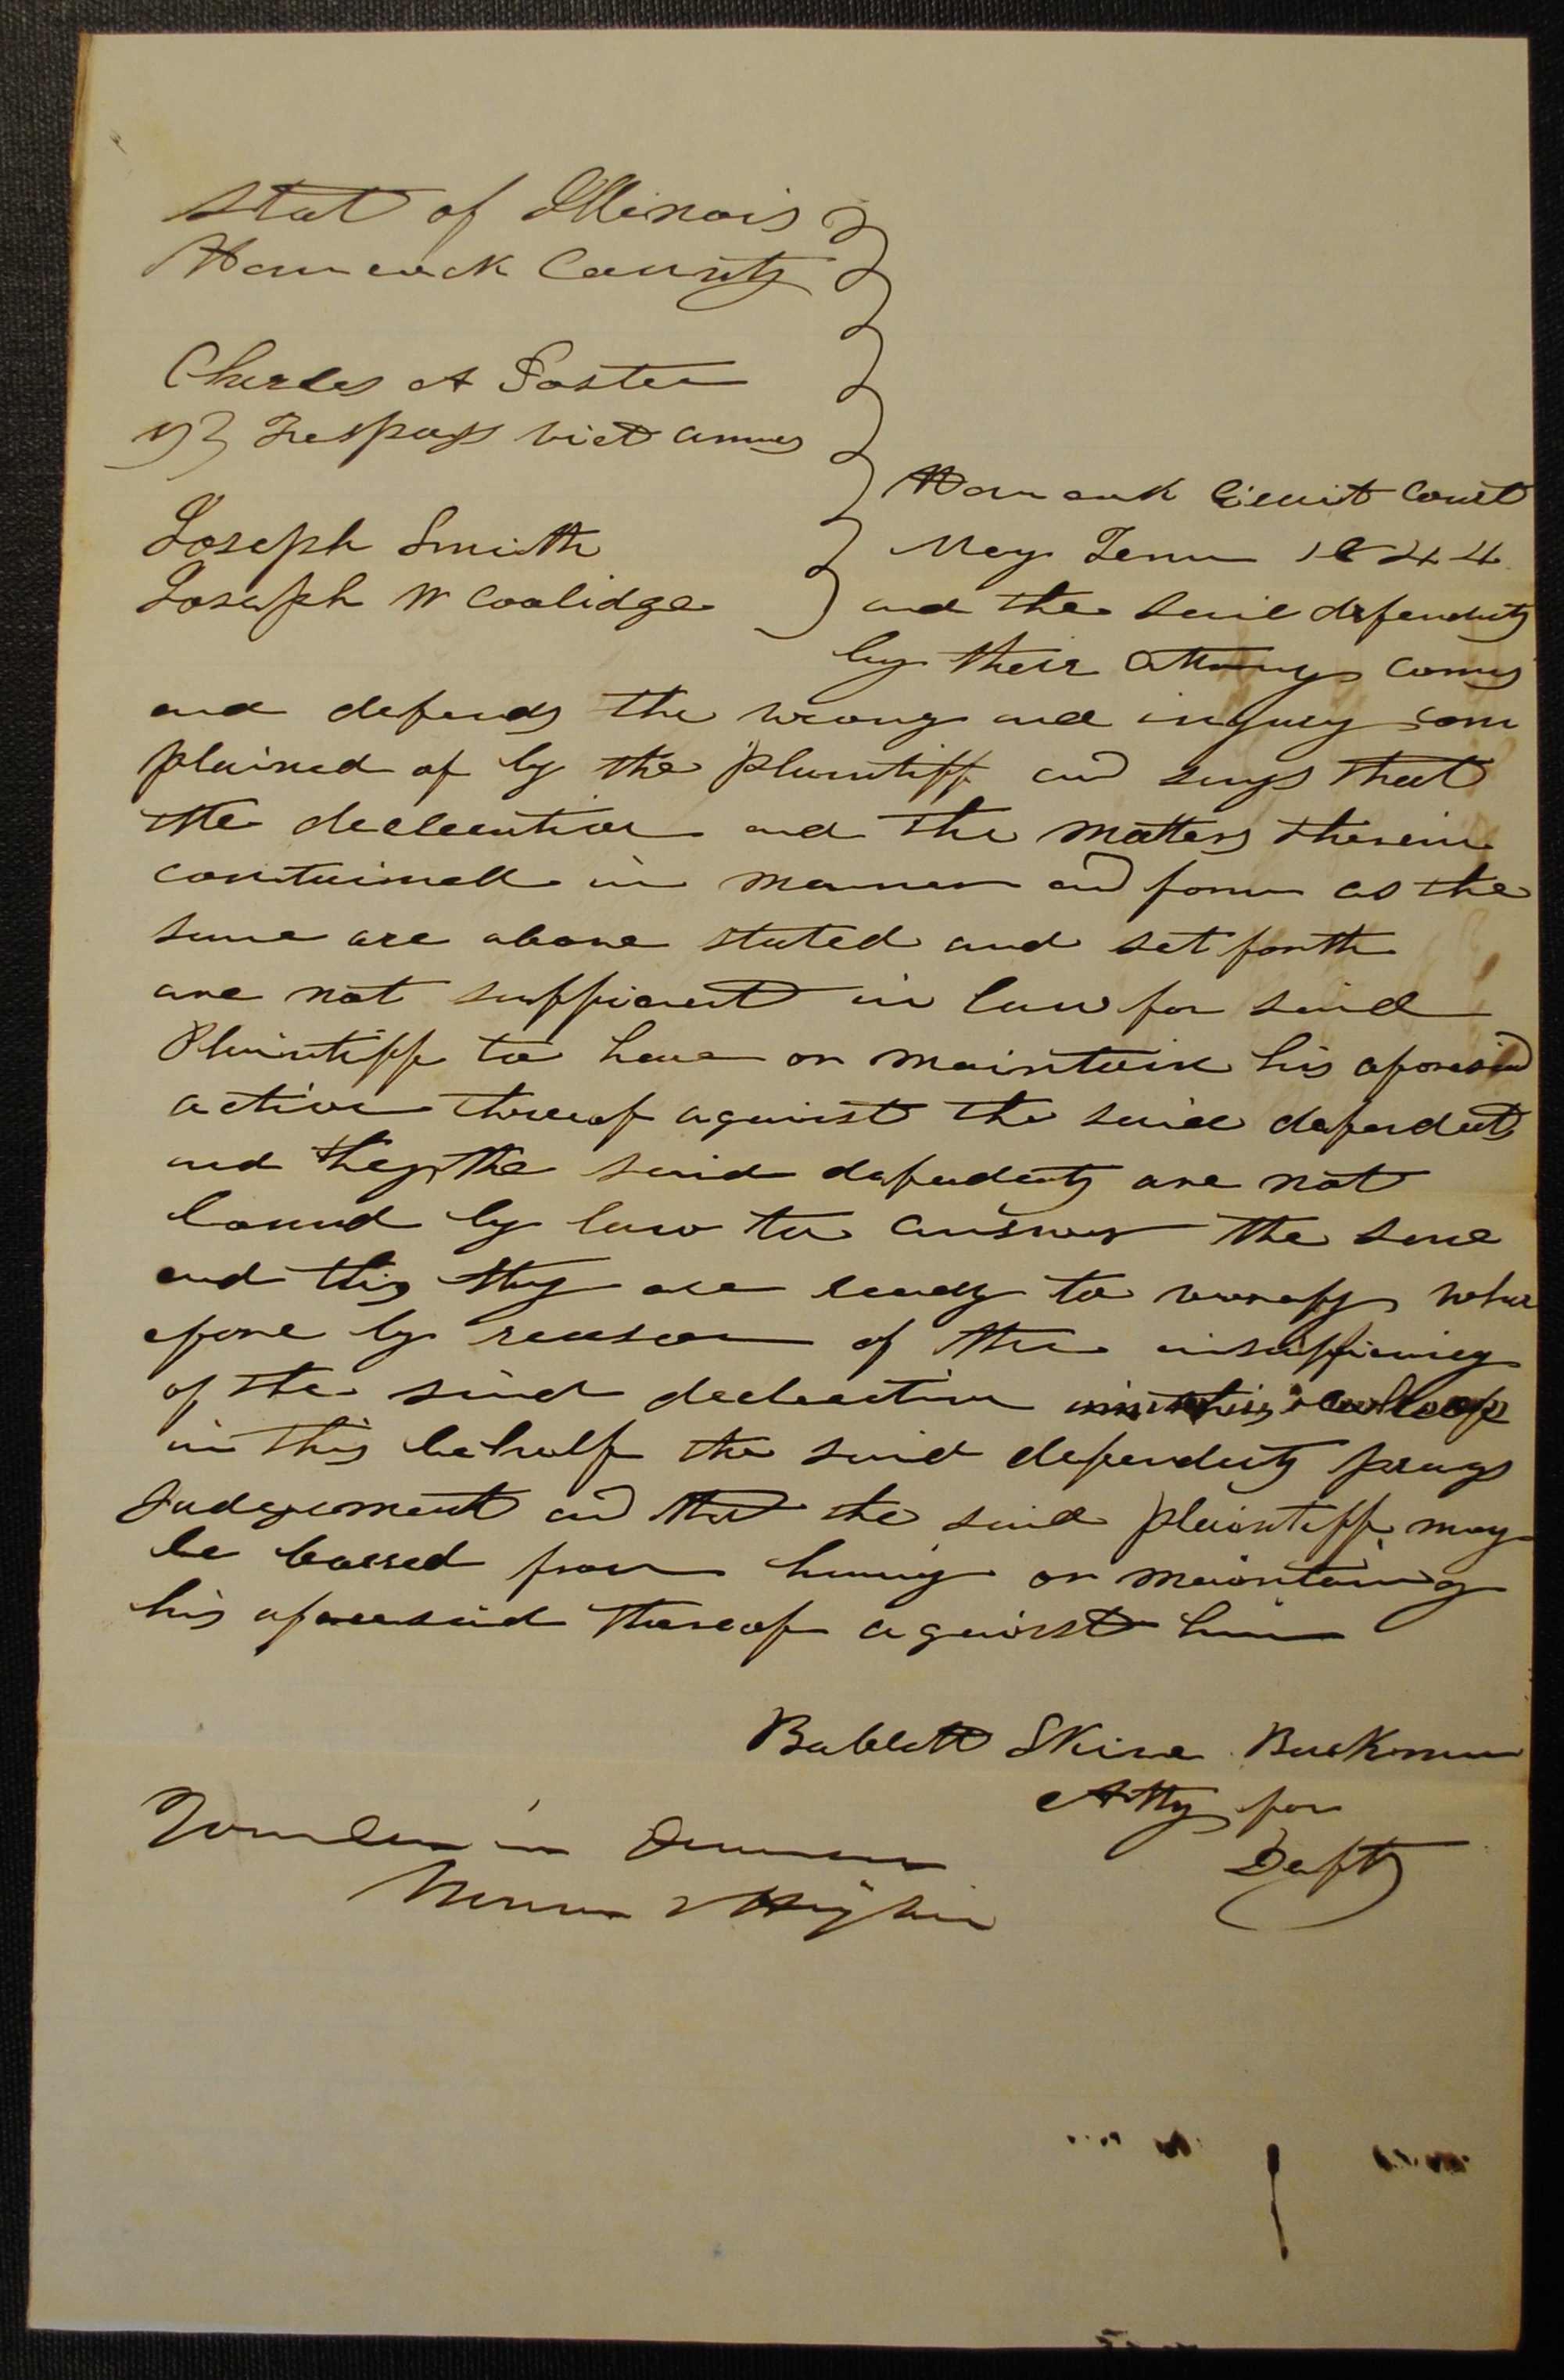 Stat of Illinois
Hancock County
Charles A Foster
vs Trespass viet armes
Joseph Smith
Joseph W Coolidge
Hancock Circuit Court
May Term 1844
and the said defendents
by their attorneys comes
and defends the wrong and injury com
plained of by the Plaintiff and says that
the declaration and the matters therein
containned in manner and form as the
same are above stated and set forth
are not sufficient in law for said
Plaintiff to have or maintain his aforesaid
action thereof against the said defendents
and they the said defendents are not
bound by law to answer the same
and this they are ready to verafy where
fore by reason of the insufficiency
of the said declaration
in this behalf the said defendents prays
Judgement and that the said plaintiff may
be barred from having or maintaining
his aforesaid thereof against him
Babbitt Skine Buckman
Atty for
Defts
Joinder in Demurrer
&